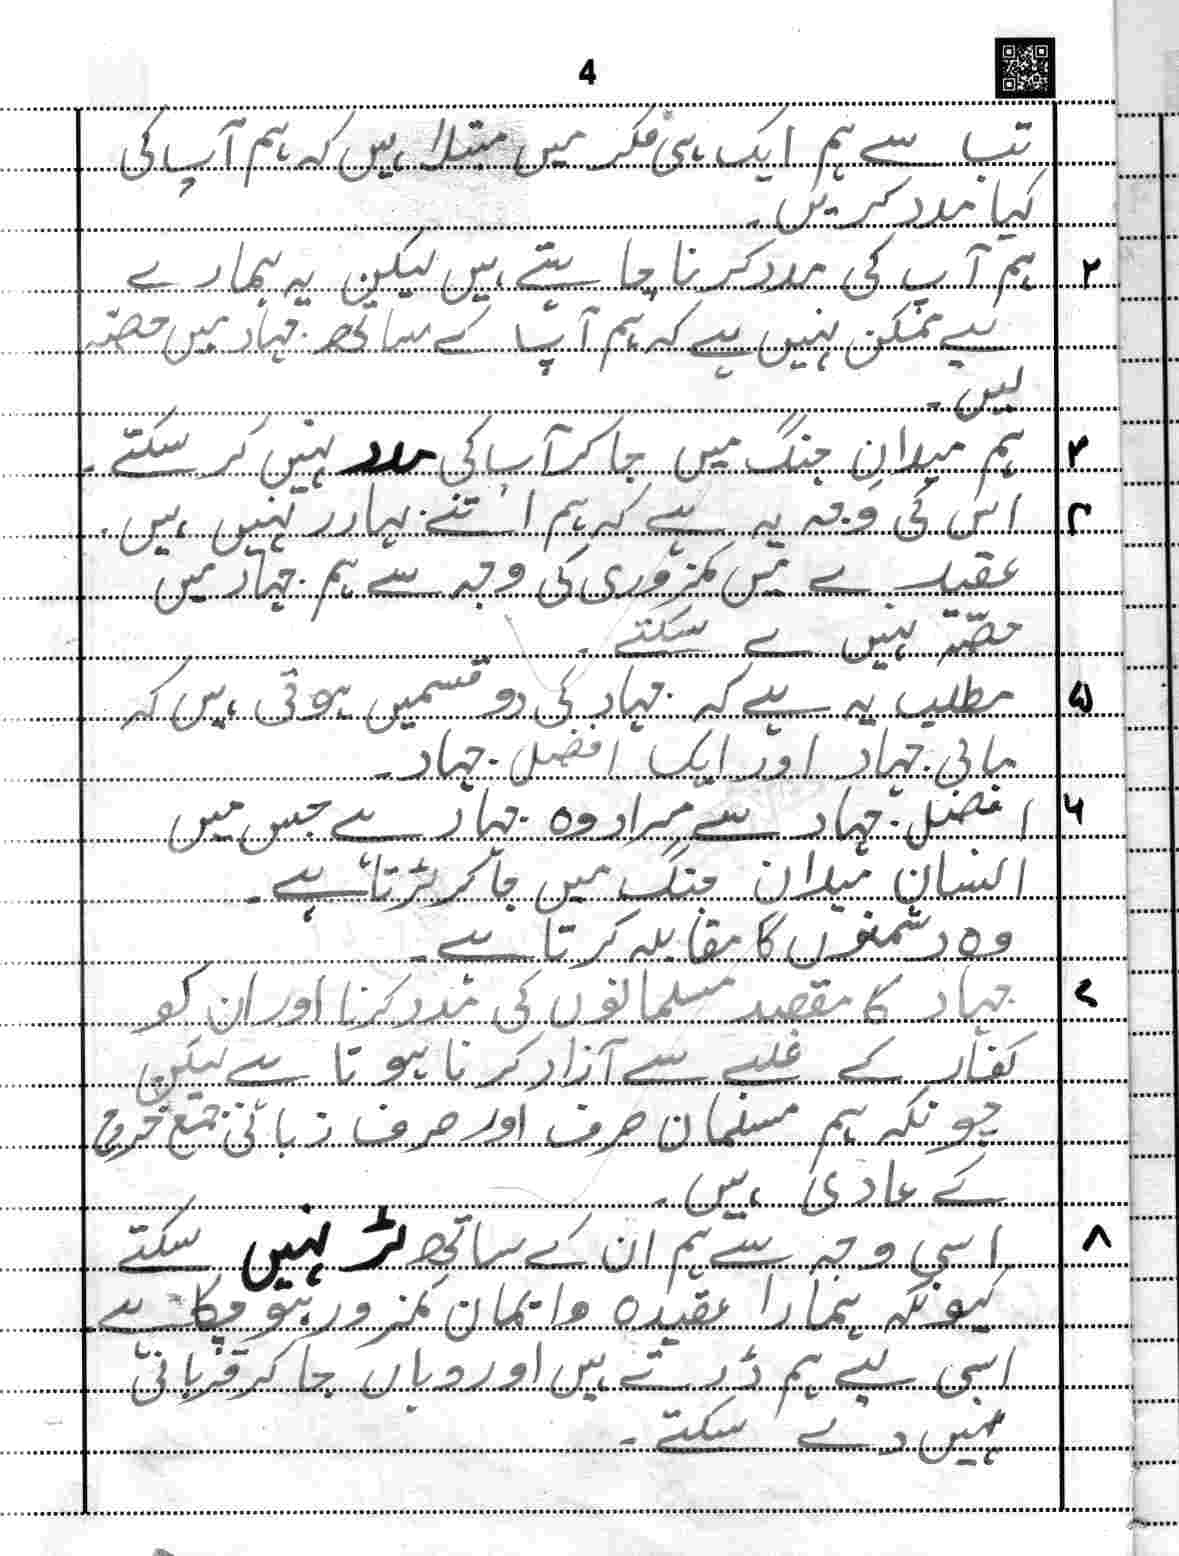 4
تب سے ہم ایک ہی فکر میں مبتلا ہیں کہ ہم آپ کی
کیا مدد کریں۔
۲ ہم آپ کی مدد کرنا چاہتے ہیں لیکن یہ ہمارے
لیے ممکن نہیں ہے کہ ہم آپ کے ساتھ جہاد میں حصّہ
لیں۔
۳ ہم میدانِ جنگ میں جا کر آپ کی مدد نہیں کر سکتے۔
۴ اس کی وجہ یہ ہے کہ ہم اتنے بہادر نہیں ہیں۔
عقیدے میں کمزوری کی وجہ سے ہم جہاد میں
حصّہ نہیں لے سکتے۔
۵ مطلب یہ ہے کہ جہاد کی دو قسمیں ہوتی ہیں کہ
مالی جہاد اور ایک افضل جہاد۔
۶ افضل جہاد سے مراد وہ جہاد ہے جس میں
انسان میدان جنگ میں جا کر لڑتا ہے۔
وہ دشمنوں کا مقابلہ کرتا ہے۔
۷ جہاد کا مقصد مسلمانوں کی مدد کرنا اور ان کو
کفار کے غلبے سے آزاد کرنا ہوتا ہے لیکن
چونکہ ہم مسلمان صرف اور صرف زبانی جمع خرچ
کے عادی ہیں۔
۸ اسی وجہ سے ہم ان کے ساتھ لڑ نہیں سکتے
کیونکہ ہمارا عقیدہ وایمان کمزور ہو چکا ہے
اسی لیے ہم ڈرتے ہیں اور وہاں جا کر قربانی
نہیں دے سکتے۔